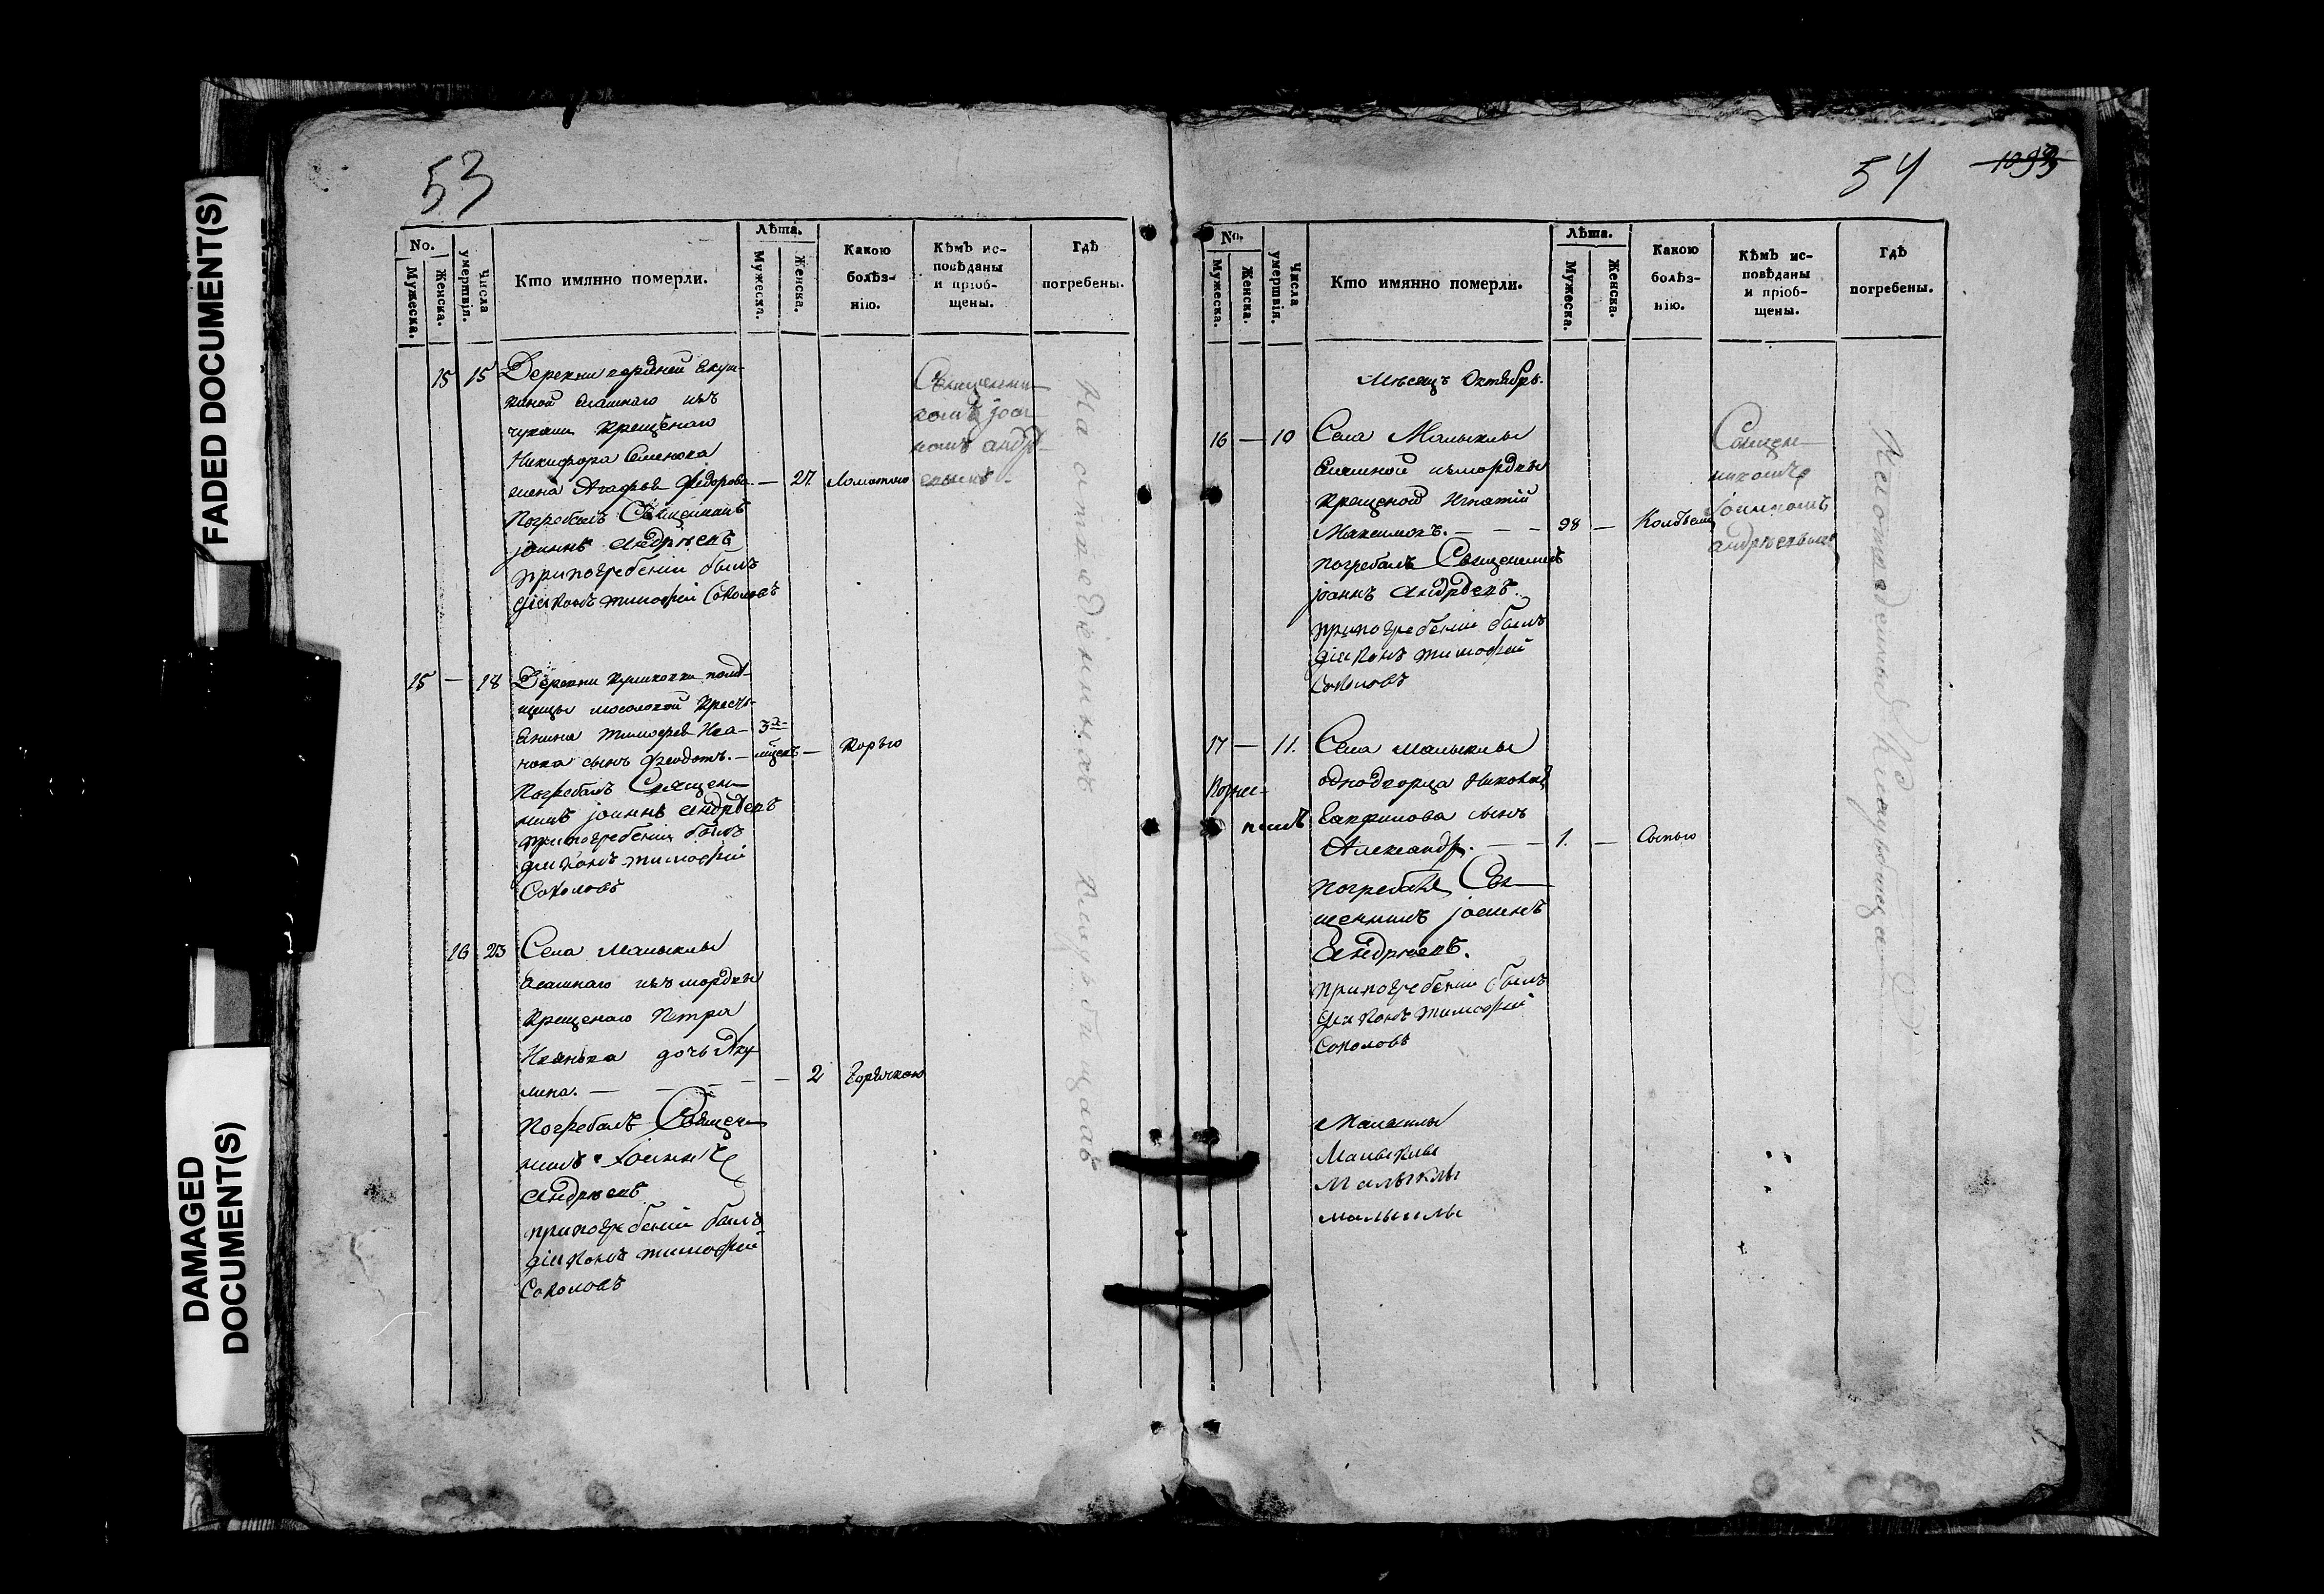 FADED DOCUMENT(S)
DAMAGED
DOCUMENT(S)
53
No.
Мужеска.
Женска.
Числа
умертвія.
Кто имянно померли.
Лѣта.
Мужеска.
Женска.
Какою
болѣз-
нію.
Кѣмъ ис-
повѣданы
и пріоб-
щены.
Гдѣ
погребены.
15 15 Деревни
ясашнаго изъ
чувашъ крещенаго
Никифора Семенова
жена Агафья Федорова — 27. Ломотою
Погребалъ Священникъ
іоаннъ Андрѣевъ
при погребеніи былъ
діаконъ тимофей Соколовъ
Священни-
комъ іоан-
номъ андрѣ-
евымъ
На отведенныхъ кладьбищахъ
15 — 18 Деревни помѣ-
щицы крестья-
янина тимофея Ива-
нова сынъ Феодотъ. — 3х
мѣсецъ — Корью
Погребалъ Священ-
никъ іоаннъ Андрѣевъ
при погребеніи былъ
діаконъ тимофей
Соколовъ
16 23 Села Малыклы
ясашнаго изъ мордвы
крещенаго Петра
Иванова дочь Аку-
лина. — — — — 2 Горячкою
Погребалъ Священ-
никъ Іоаннъ
Андрѣевъ
при погребеніи былъ
діаконъ тимофей
Соколовъ
54
1093
No.
Мужеска.
Женска.
Числа
умертвія.
Кто имянно померли.
Лѣта.
Мужеска.
Женска.
Какою
болѣз-
нію.
Кѣмъ ис-
повѣданы
и пріоб-
щены.
Гдѣ
погребены.
Мѣсяцъ Октябрь.
16 — 10 Села Малыклы
ясашной изъ мордвы
крещеной Игнатій
Максимовъ. — — — 98 —
погребалъ Священникъ
іоаннъ Андрѣевъ.
при погребеніи былъ
діаконъ тимофей
Соколовъ
Священ-
никомъ
Іоанномъ
андрѣевымъ
17 — 11. Села малыклы
однодворца
сынъ
Александръ. — — 1. — Сыпью
погребалъ Свя-
щенникъ іоаннъ
Андрѣевъ.
при погребеніи былъ
діаконъ тимофей
Соколовъ
Малыклы
Малыклы
Малыклы
малыклы